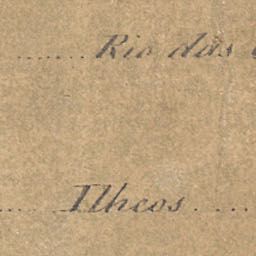 Rio das
Ilheos